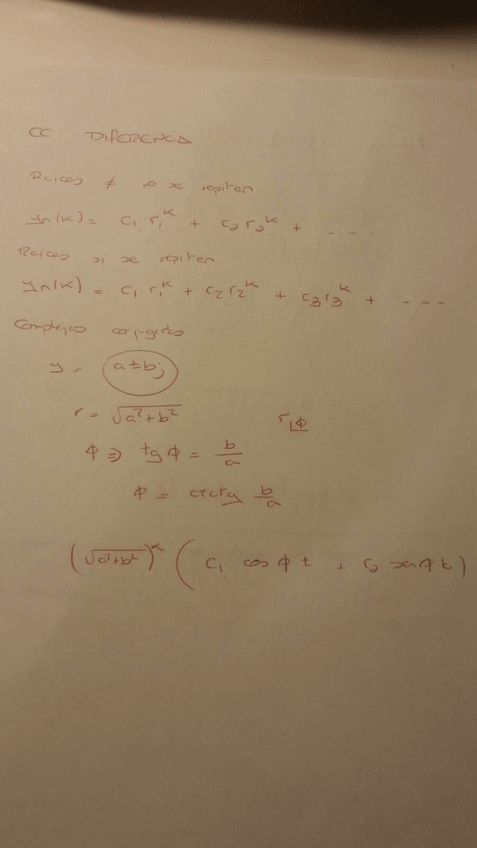 CC. DIFERENCIA
Raices ≠ no se repiten
yn(k) = c1 r1^k + c2 r2^k + ---
Raices si se repiten
yn(k) = c1 r1^k + c2 r2^k + c3 r3^k + ---
Complejos conjugados
y = a±bj
r = √a²+b² r|φ
φ ⇒ tg φ = b/a
φ = arctg b/a
(√a²+b²)^k ( c1 cos φ t + c2 sen φ t )